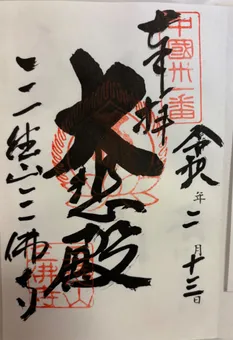 中國卅一番
奉拝
令和年二月十三日
大悲殿
三徳山三佛寺